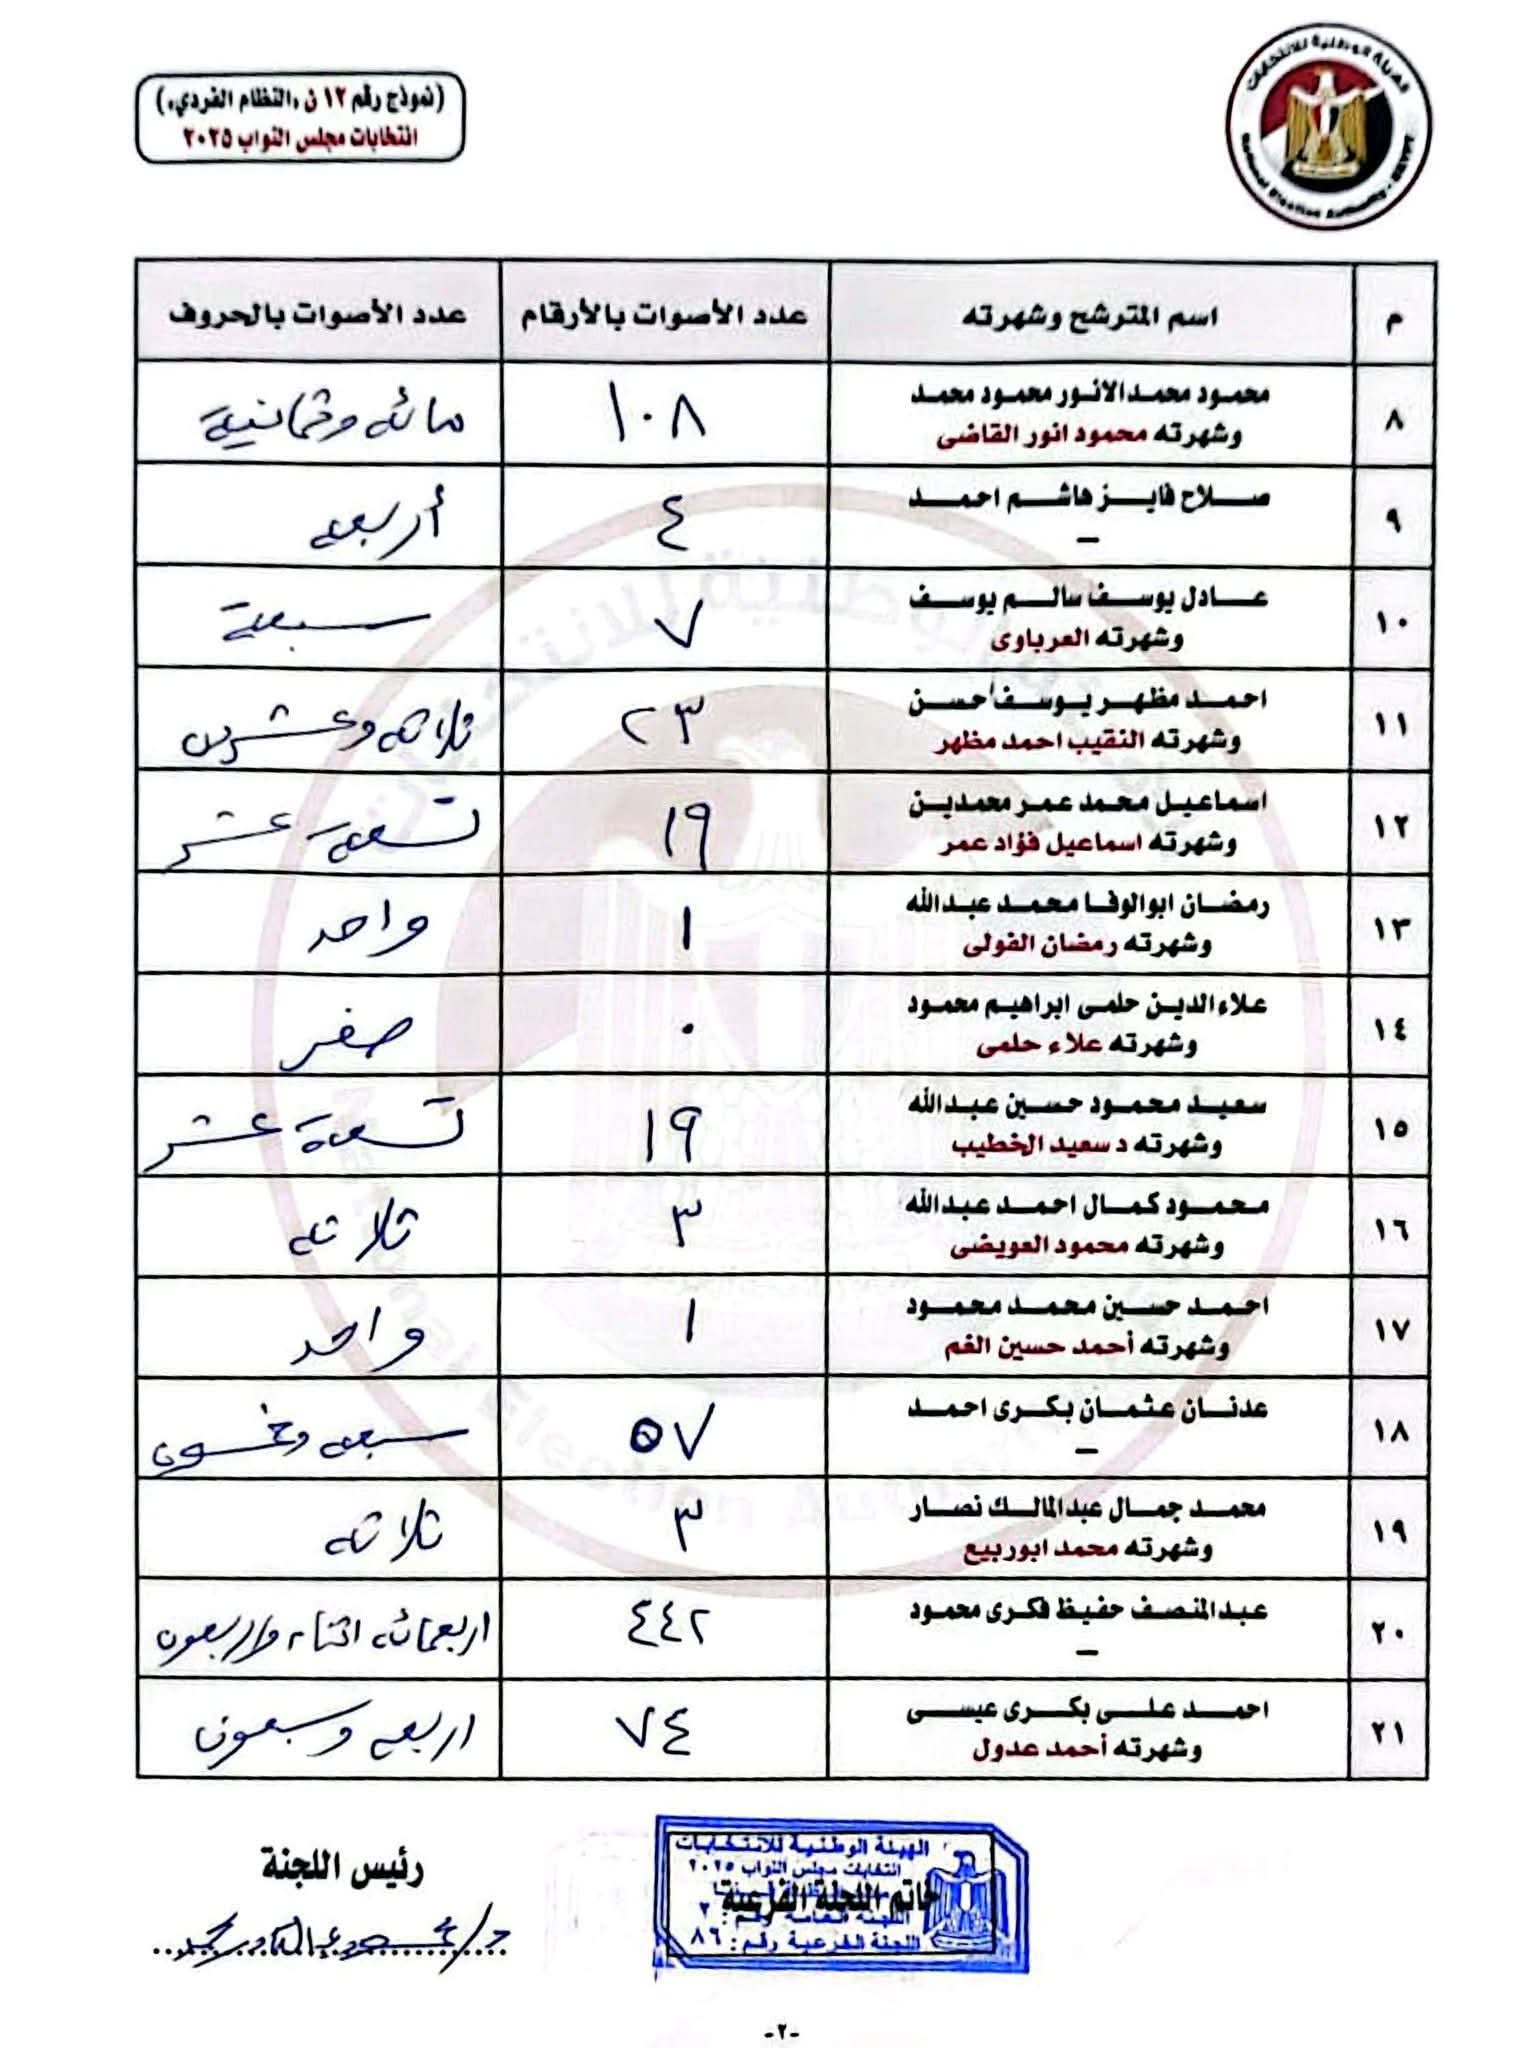 (نموذج رقم ١٢ ن «النظام الفردي»)
انتخابات مجلس النواب ٢٠٢٥
الهيئة الوطنية للانتخابات
National Election Authority - EGYPT
م اسم المترشح وشهرته عدد الأصوات بالأرقام عدد الأصوات بالحروف
٨ محمود محمد الانور محمود محمد ١٠٨ مائه وثمانية
وشهرته محمود انور القاضى
٩ صلاح فايز هاشم احمد ٤ أربعه
–
١٠ عادل يوسف سالم يوسف ٧ سبعة
وشهرته العرباوى
١١ احمد مظهر يوسف حسن ٢٣ ثلاثه وعشرين
وشهرته النقيب احمد مظهر
١٢ اسماعيل محمد عمر محمدين ١٩ تسعة عشر
وشهرته اسماعيل فؤاد عمر
١٣ رمضان ابوالوفا محمد عبدالله ١ واحد
وشهرته رمضان الفولى
١٤ علاء الدين حلمى ابراهيم محمود ٠ صفر
وشهرته علاء حلمى
١٥ سعيد محمود حسين عبدالله ١٩ تسعة عشر
وشهرته د سعيد الخطيب
١٦ محمود كمال احمد عبدالله ٣ ثلاثه
وشهرته محمود العويضى
١٧ احمد حسين محمد محمود ١ واحد
وشهرته أحمد حسين الغم
١٨ عدنان عثمان بكرى احمد ٥٧ سبعه وخمسون
–
١٩ محمد جمال عبدالمالك نصار ٣ ثلاثه
وشهرته محمد ابوربيع
٢٠ عبدالمنصف حفيظ فكرى محمود ٤٤٢ اربعمائه اثناء واربعون
–
٢١ احمد على بكرى عيسى ٧٤ اربعه وسبعون
وشهرته أحمد عدول
الهيئة الوطنية للانتخابات
انتخابات مجلس النواب ٢٠٢٥
خاتم اللجنة الفرعية
اللجنة العامة رقم: ٢
اللجنة الفرعية رقم: ٨٦
رئيس اللجنة
-٢-